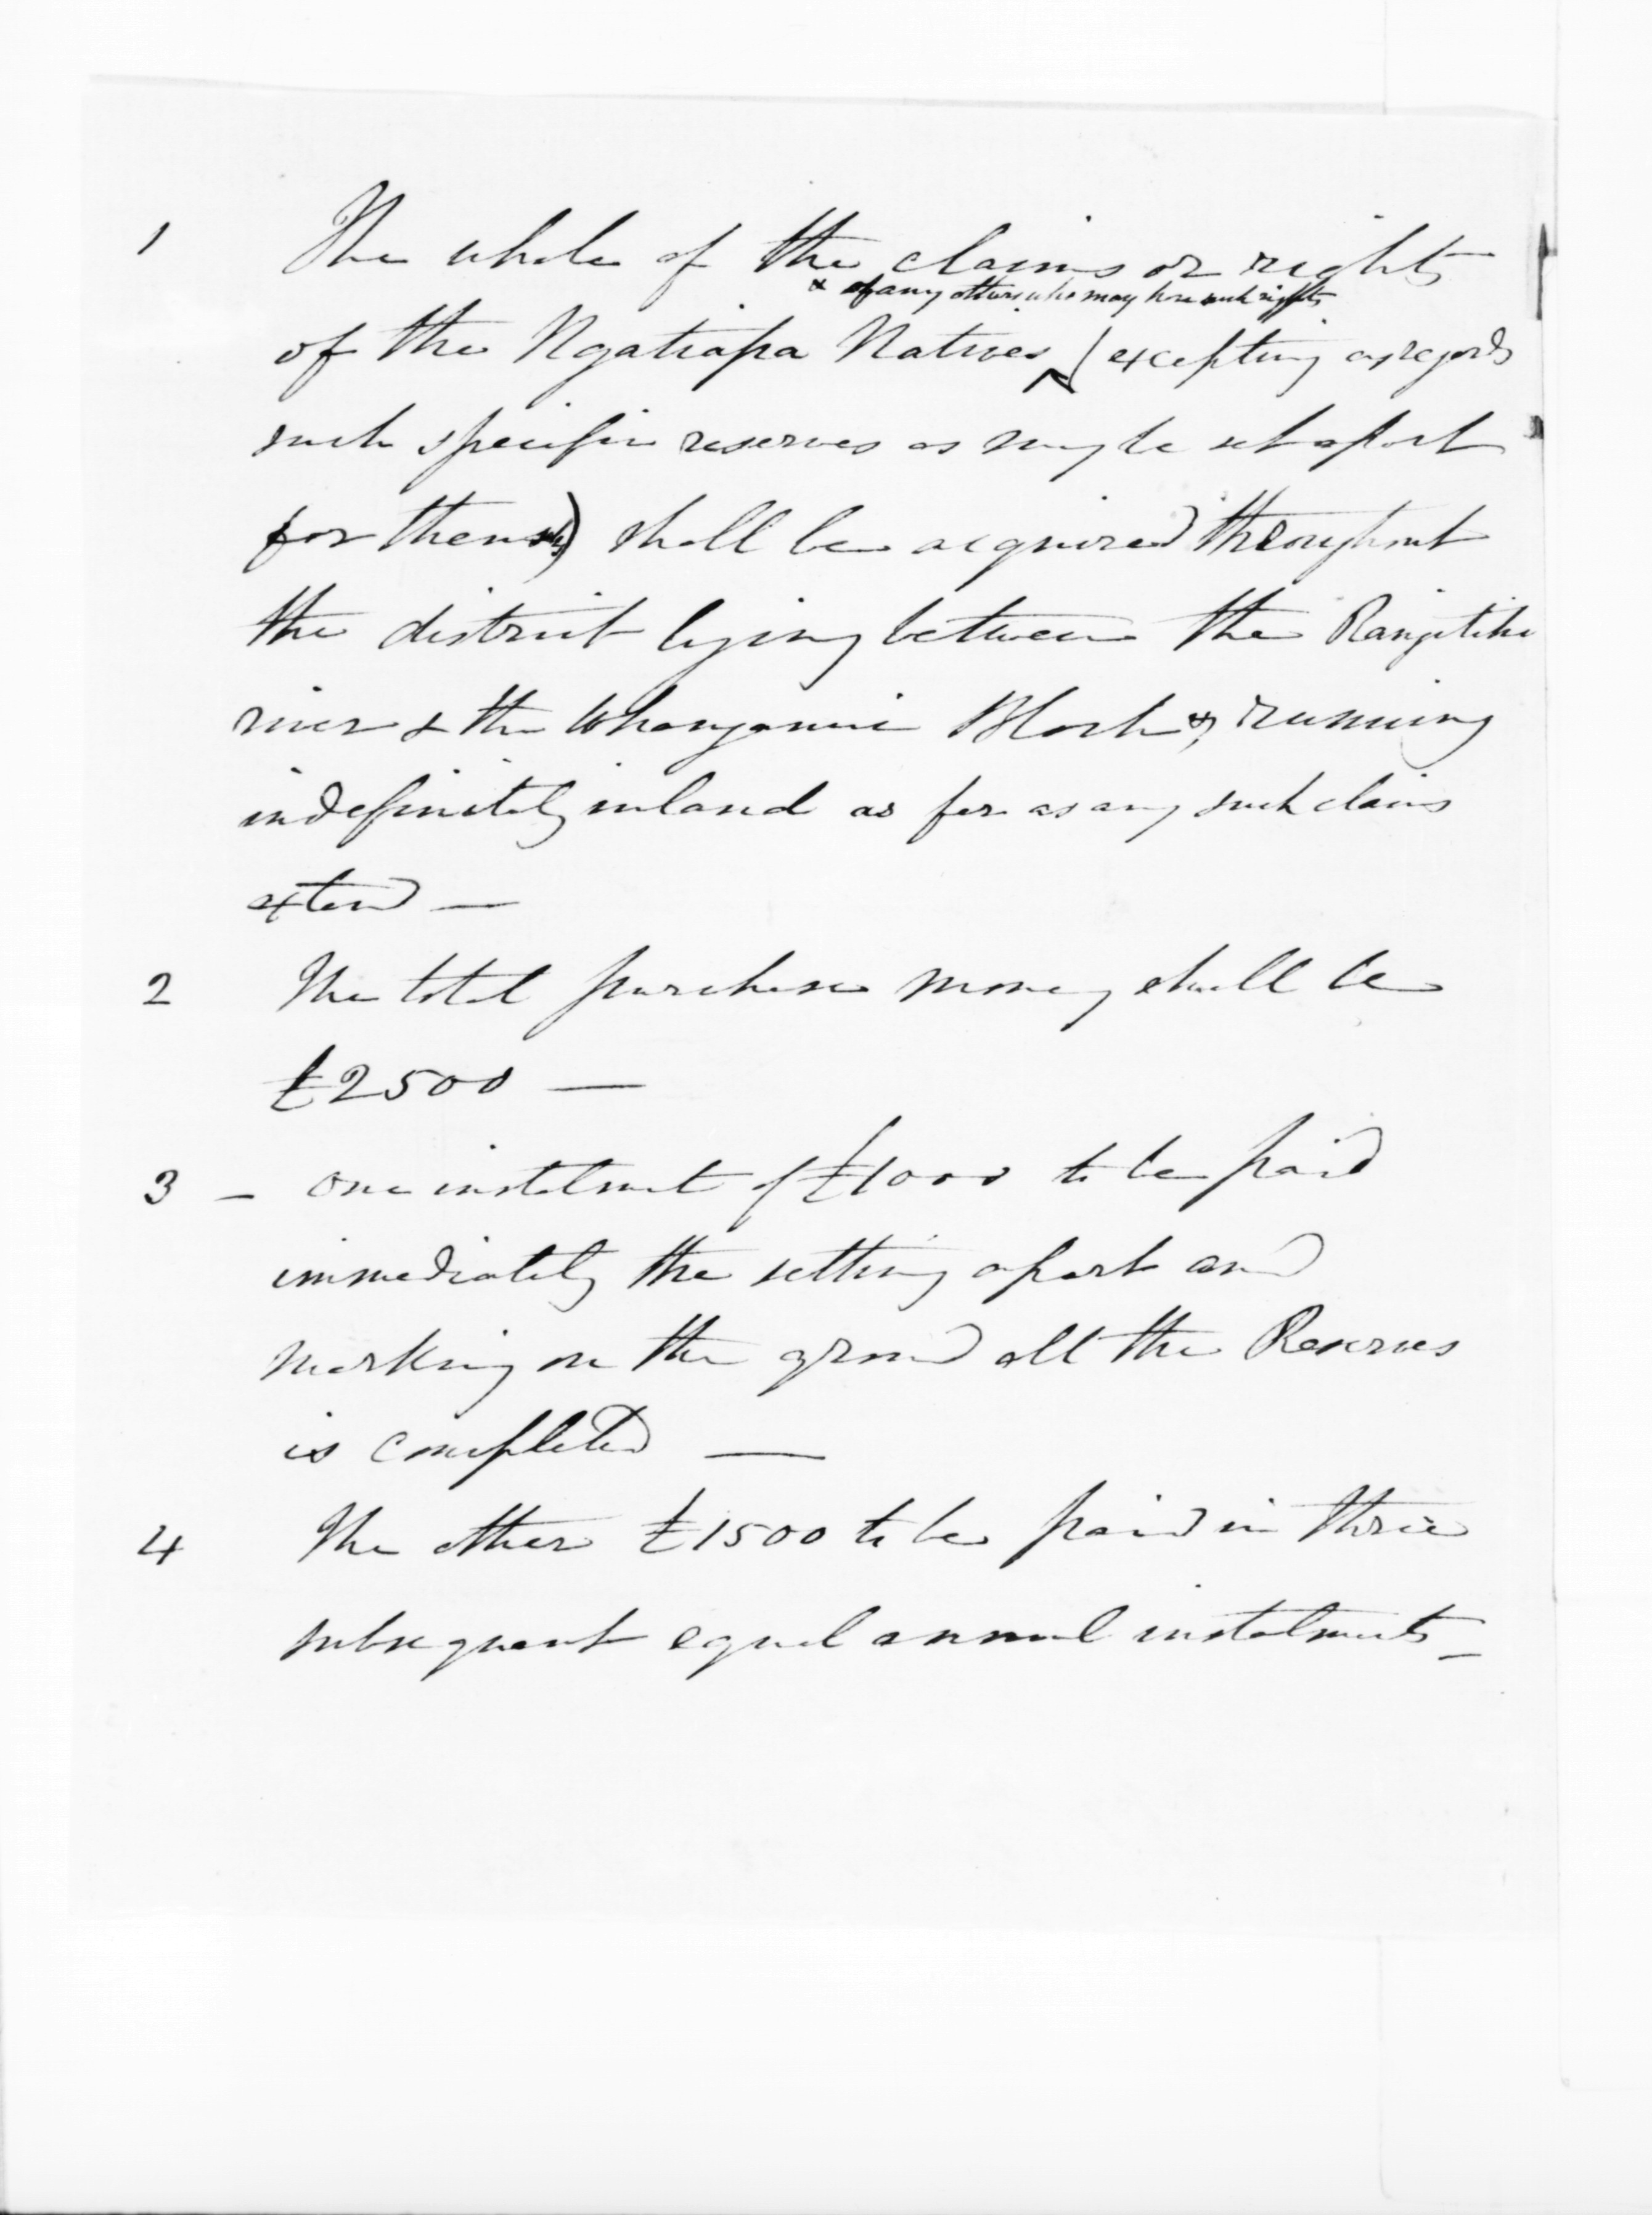 1 The whole of the claims or rights
& of any others who may have such rights
of the Ngatiapa Natives (excepting as regards
such specific reserves as may be set apart
for them) shall be acquired throughout
the district lying between the Rangitikei
river & the Whanganui Block & running
indefinitely inland as far as any such claims
extend —
2 The total purchase money shall be
£2500 —
3 — One instalment of £1000 to be paid
immediately the setting apart and
marking on the ground all the Reserves
is completed —
4 The other £1500 to be paid in three
subsequent equal annual instalments —